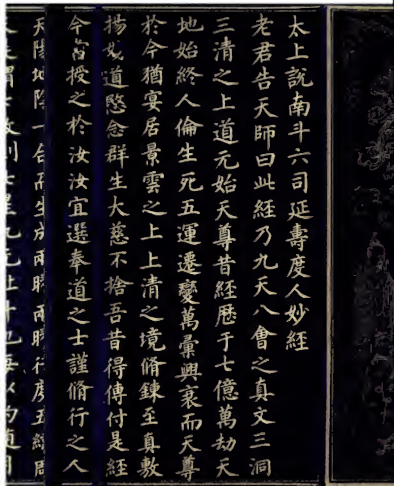 太上說南斗六司延壽度人妙經
老君告天師曰此經乃九天八會之真文三洞
三清之上道元始天尊昔經歷于七億萬劫天
地始終人倫生死五運遷變萬彙興衰而天尊
於今猶宴居景雲之上上清之境脩鍊至真敷
揚妙道愍念群生大慈不捨吾昔得傳付是經
今當授之於汝汝宜選奉道之士謹脩行之人
天陽地陰一合而生成兩時兩時行度五經周